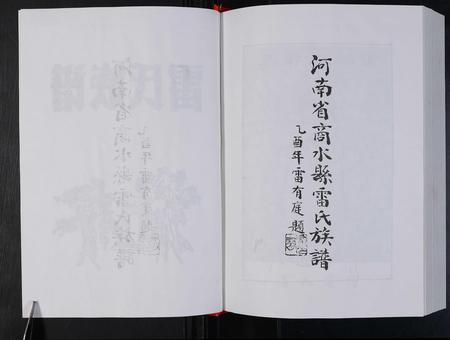 河南省商水縣雷氏族譜
乙酉年雷有庭題
雷氏族譜